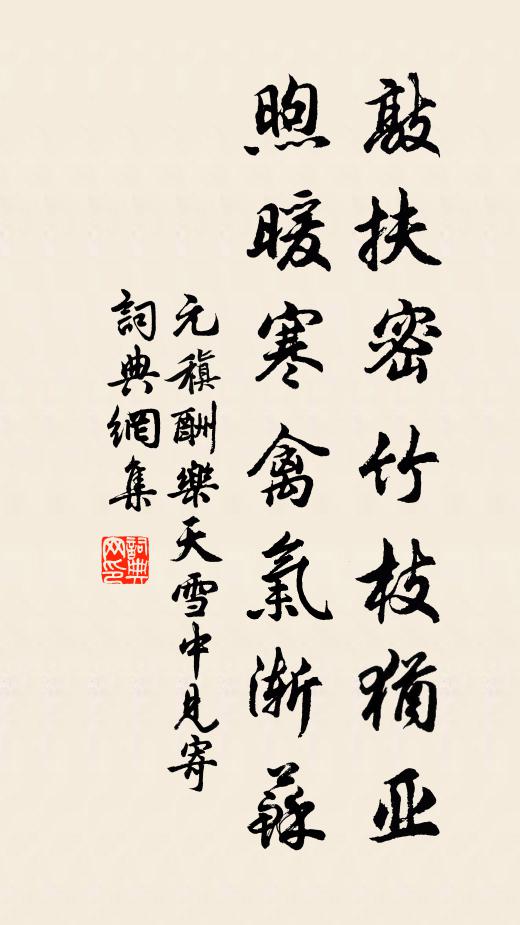 敲扶密竹枝猶亚
煦暖寒禽氣漸蘇
元稹酬樂天雪中見寄
詞典網集
詞典网印